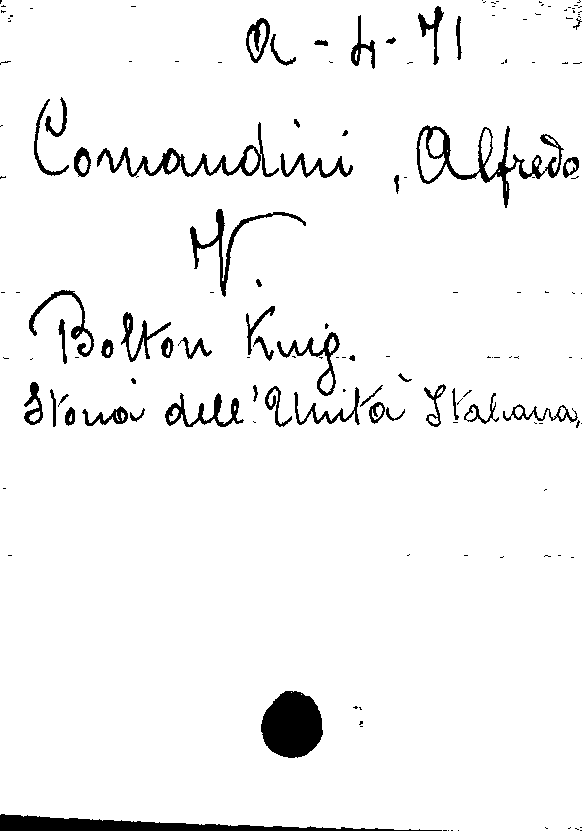 a-4-71
Comandini, Alfredo
V.
Bolton King.
Storia dell'Unità Italiana,